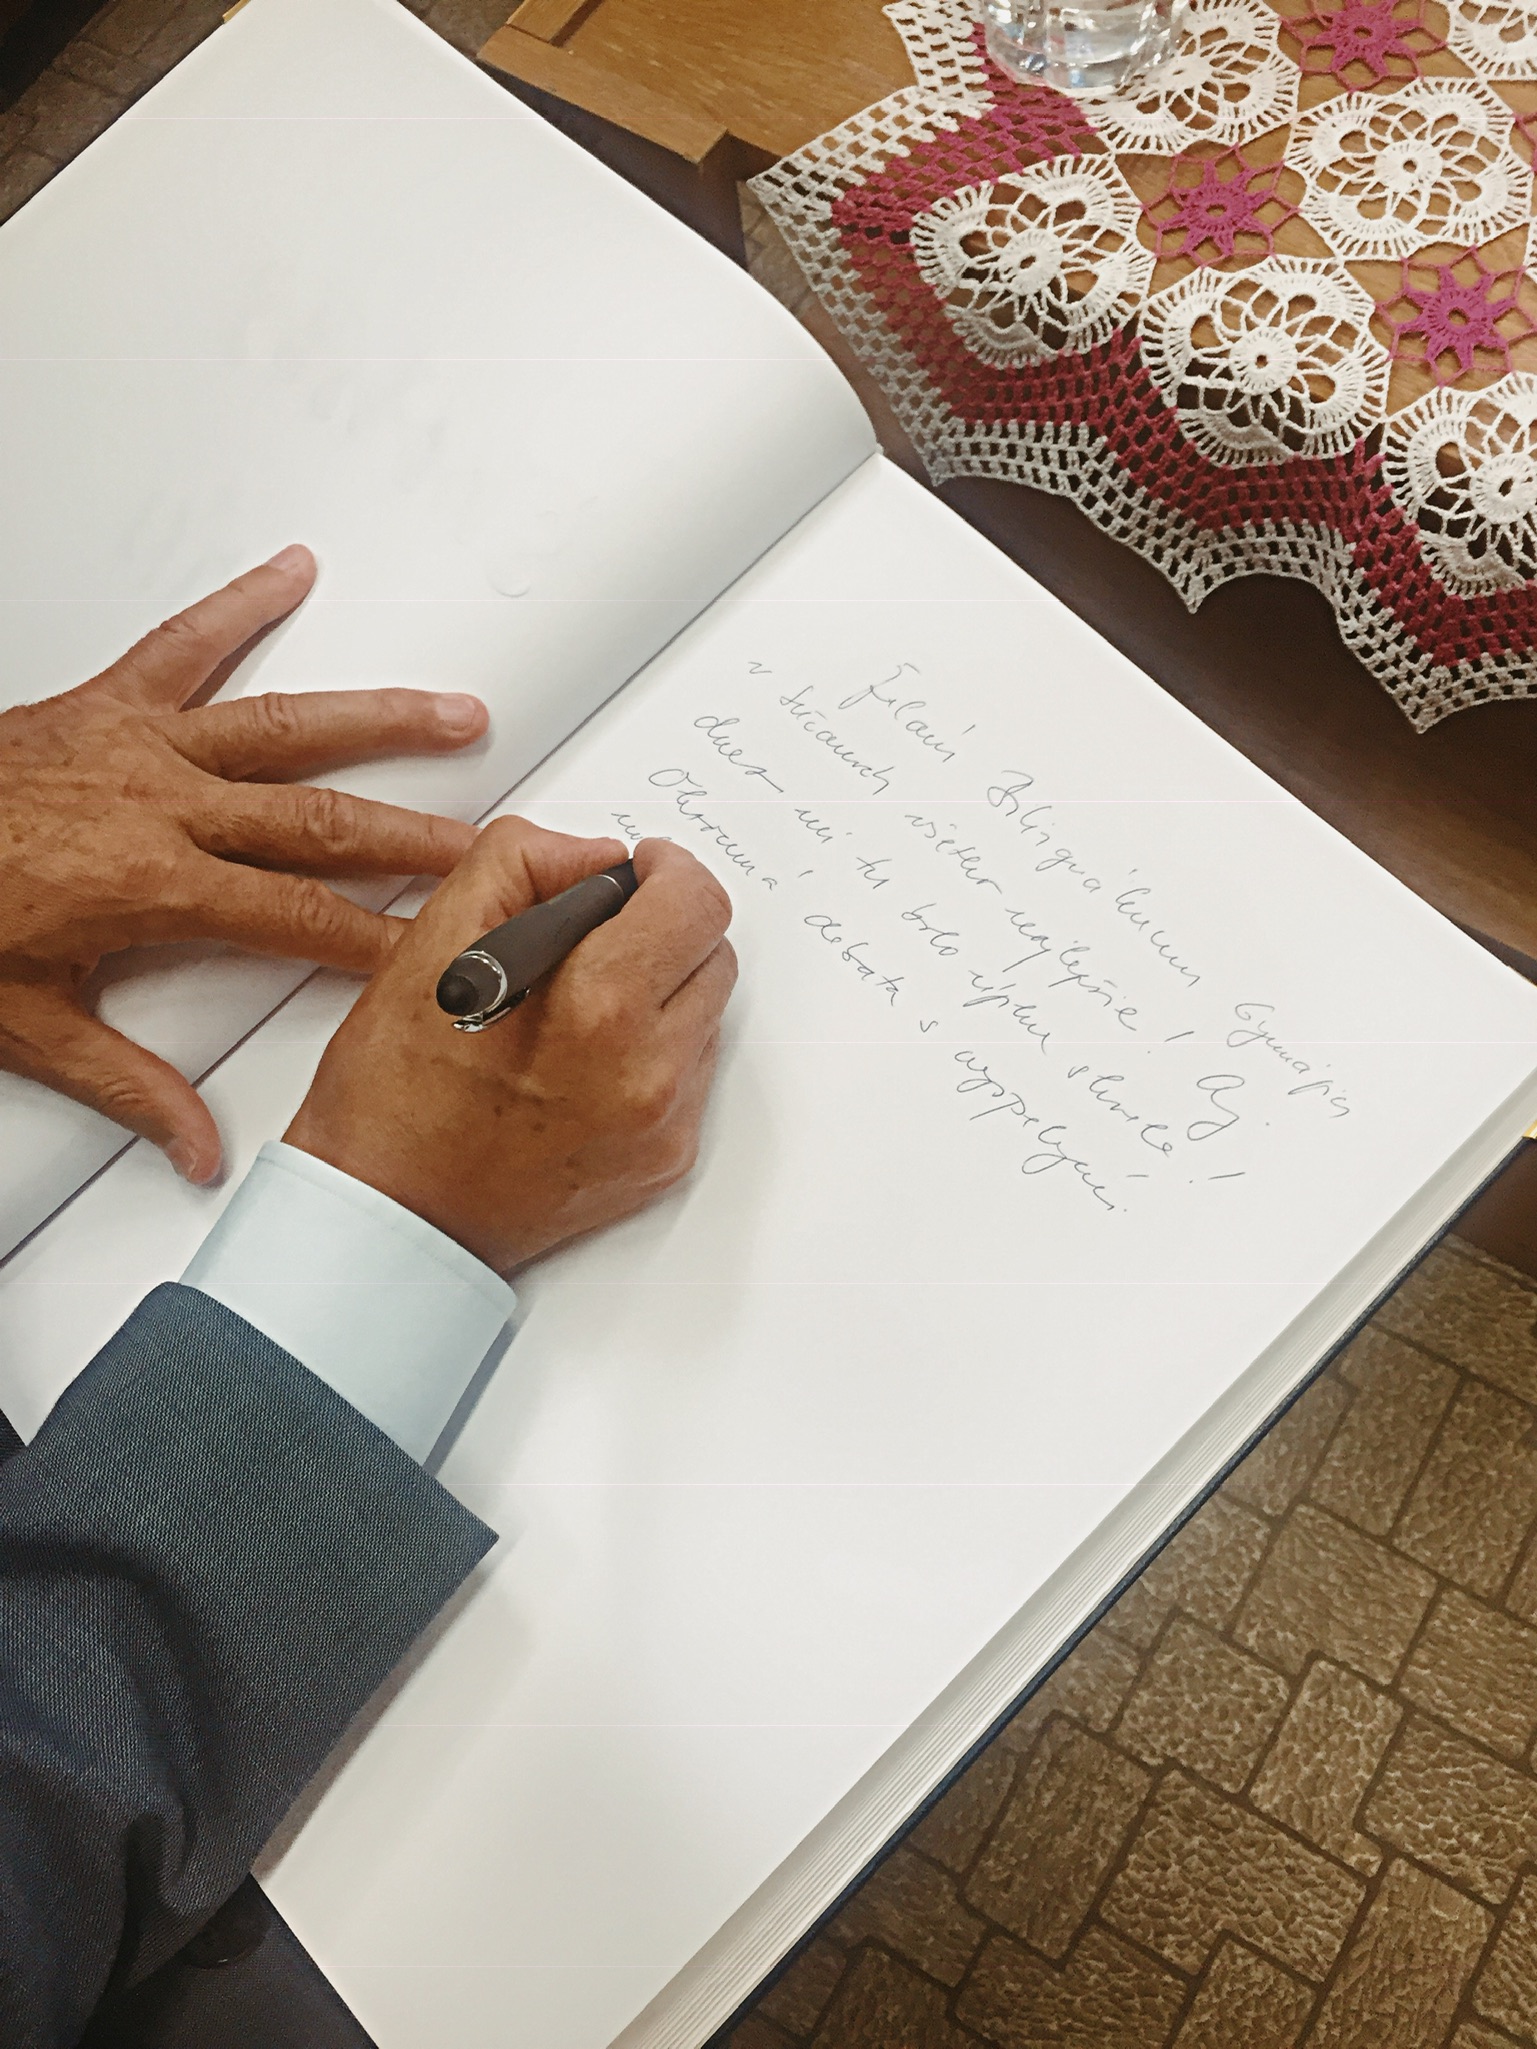 Želám Bilingválnemu Gymnáziu
v Sučanoch všetko najlepšie! Aj
dnes mi tu bolo úplne skvele!
Ohromná debata s